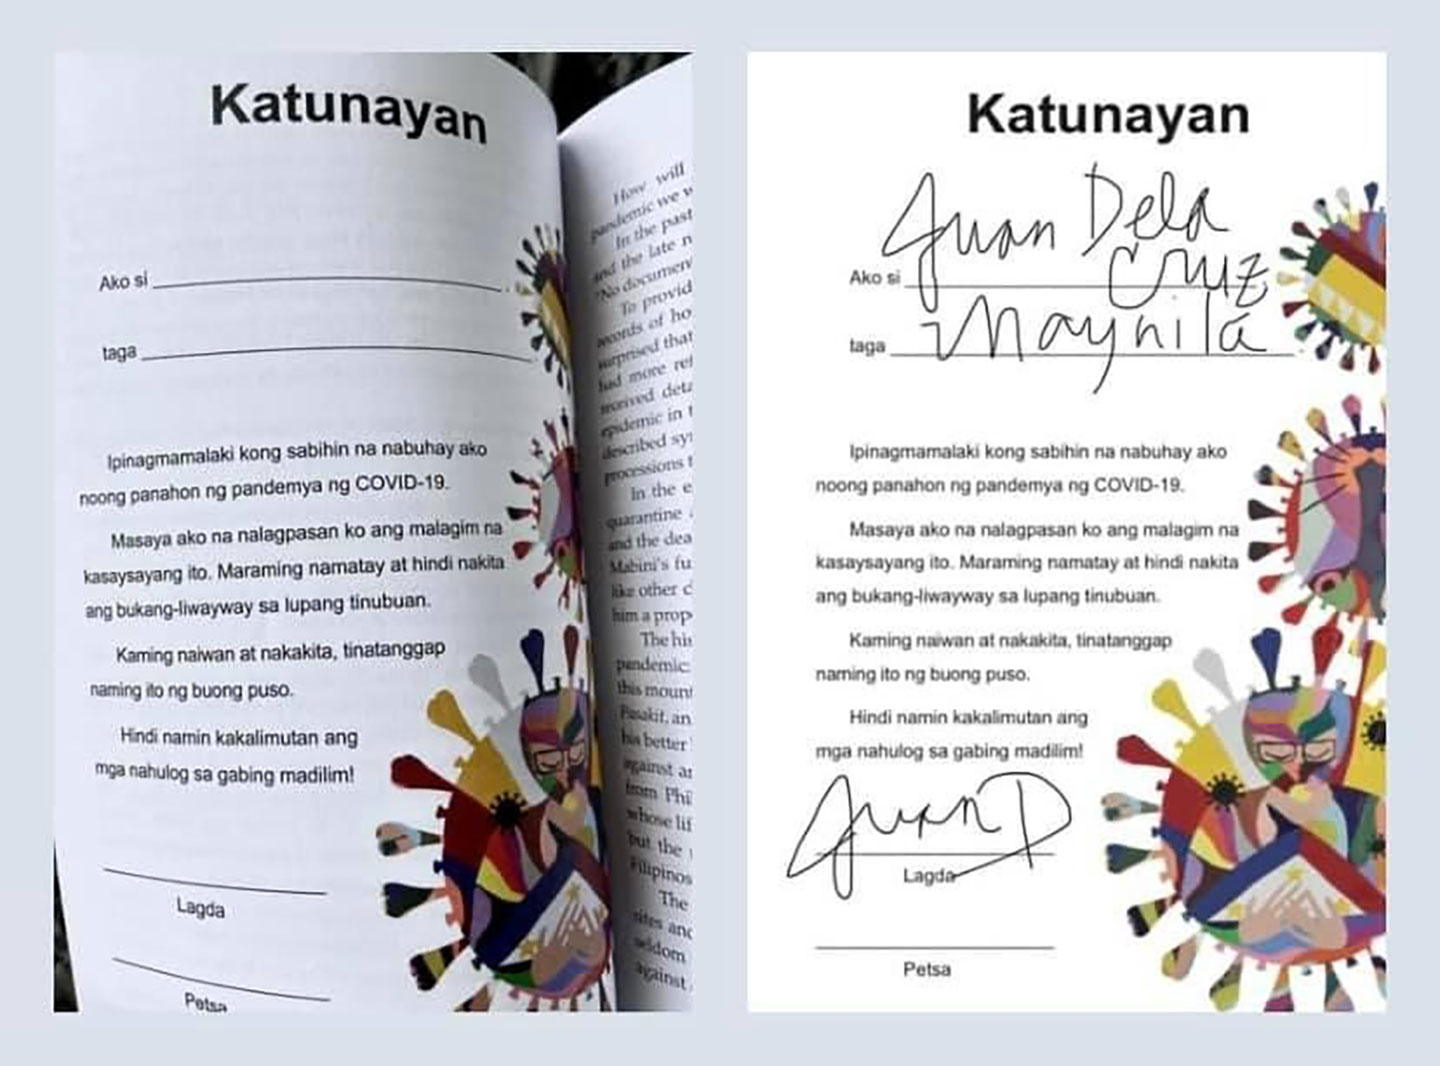 Katunayan
Ako si
taga
Ipinagmamalaki kong sabihin na nabuhay ako
noong panahon ng pandemya ng COVID-19.
Masaya ako na nalagpasan ko ang malagim na
kasaysayang ito. Maraming namatay at hindi nakita
ang bukang-liwayway sa lupang tinubuan.
Kaming naiwan at nakakita, tinatanggap
naming ito ng buong puso.
Hindi namin kakalimutan ang
mga nahulog sa gabing madilim!
Lagda
Petsa
How will
pandemic we
In the past
and the late
"No
To
records of
surprised that
had more
received
epidemic in
described
processions
In the
quarantine
and the
Mabini's
like other
him a
The
pandemic
this
Pasakit, an
his better
against
from
whose
but the
Filipinos
The
rites
seldom
against
Katunayan
Ako si Juan Dela
Cruz
taga Maynila
Ipinagmamalaki kong sabihin na nabuhay ako
noong panahon ng pandemya ng COVID-19.
Masaya ako na nalagpasan ko ang malagim na
kasaysayang ito. Maraming namatay at hindi nakita
ang bukang-liwayway sa lupang tinubuan.
Kaming naiwan at nakakita, tinatanggap
naming ito ng buong puso.
Hindi namin kakalimutan ang
mga nahulog sa gabing madilim!
Juan D
Lagda
Petsa